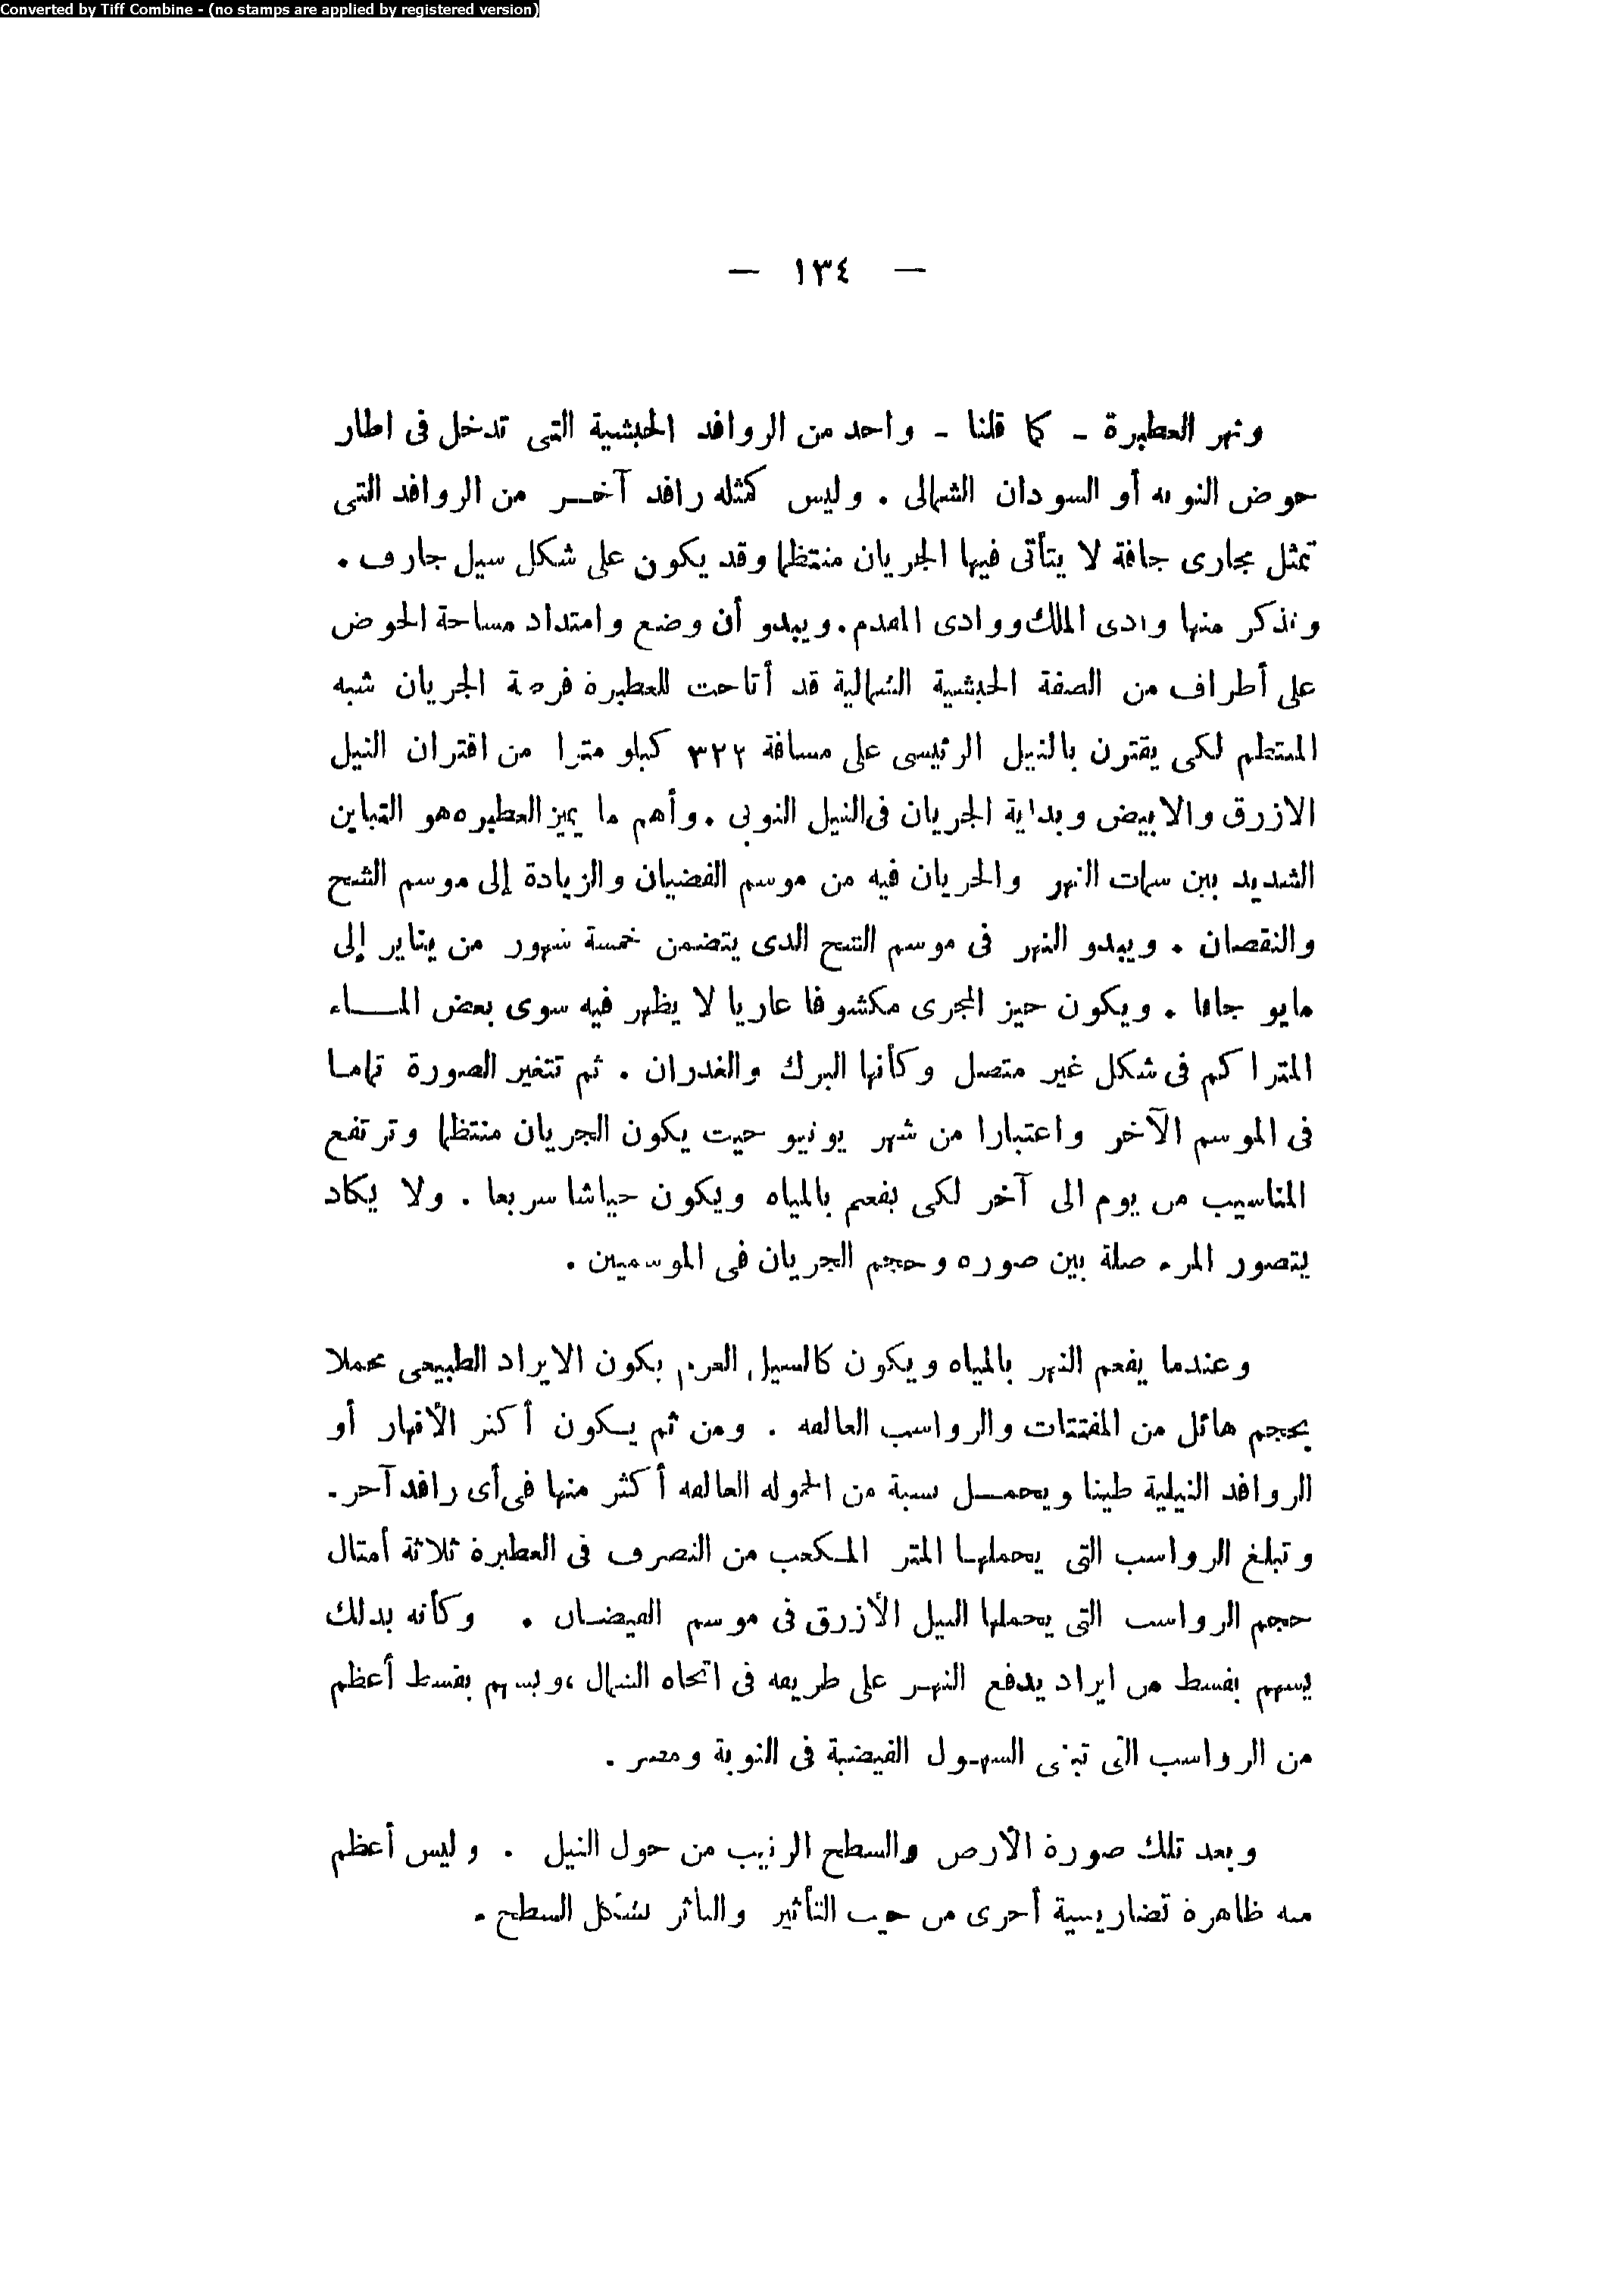 Converted by Tiff Combine - (no stamps are applied by registered version)
— ١٣٤ —
ونهر العطبرة - كما قلنا - واحد من الروافد الحبشية التى تدخل فى اطار
حوض النوبه أو السودان الشمالى . وليس كمثله رافد آخر من الروافد التى
تمثل مجارى جافة لا يتأتى فيها الجريان منتظما وقد يكون على شكل سيل جارف .
ونذكر منها وادى الملك ووادى المقدم. ويبدو أن وضع وامتداد مساحة الحوض
على أطراف من الصفة الحبشية الشمالية قد أتاحت للعطبرة فرصة الجريان شبه
المنتظم لكى يقترن بالنيل الرئيسى على مسافة ٣٢٢ كيلو مترا من اقتران النيل
الازرق والابيض وبداية الجريان فى النيل النوبى . وأهم ما يميز العطبره هو التباين
الشديد بين سمات النهر والجريان فيه من موسم الفضيان والزيادة إلى موسم الشح
والنقصان . ويبدو النهر فى موسم الشح الذى يتضمن خمسة شهور من يناير إلى
مايو جافا . ويكون حيز المجرى مكشوفا عاريا لا يظهر فيه سوى بعض المـــاء
المتراكم فى شكل غير متصل وكأنها البرك والغدران . ثم تتغير الصورة تماما
فى الموسم الآخر واعتبارا من شهر يونيو حيث يكون الجريان منتظما وترتفع
المناسيب من يوم الى آخر لكى يفعم بالمياه ويكون جياشا سريعا . ولا يكاد
يتصور المرء صلة بين صوره وحجم الجريان فى الموسمين .
وعندما يفعم النهر بالمياه ويكون كالسيل العرم يكون الايراد الطبيعى محملا
بحجم هائل من المفتتات والرواسب العالقه . ومن ثم يـكون أكثر الأنهار أو
الروافد النيلية طينا ويحمـل نسبة من الحموله العالقه أكثر منها فى أى رافد آخر.
وتبلغ الرواسب التى يحملهـا المتر المـكعب من التصرف فى العطبرة ثلاثة أمثال
حجم الرواسب التى يحملها النيل الأزرق فى موسم الفيضـان . وكأنه بذلك
يسهم بقسط من ايراد يدفع النهـر على طريقه فى اتجاه الشمال ،ويسهم بقسط أعظم
من الرواسب التى تبنى السهـول الفيضية فى النوبة ومصر .
وبعد تلك صورة الأرض والسطح الرتيب من حول النيل . وليس أعظم
منه ظاهرة تضاريسية أخرى من حيث التأثير والتأثر بشكل السطح .